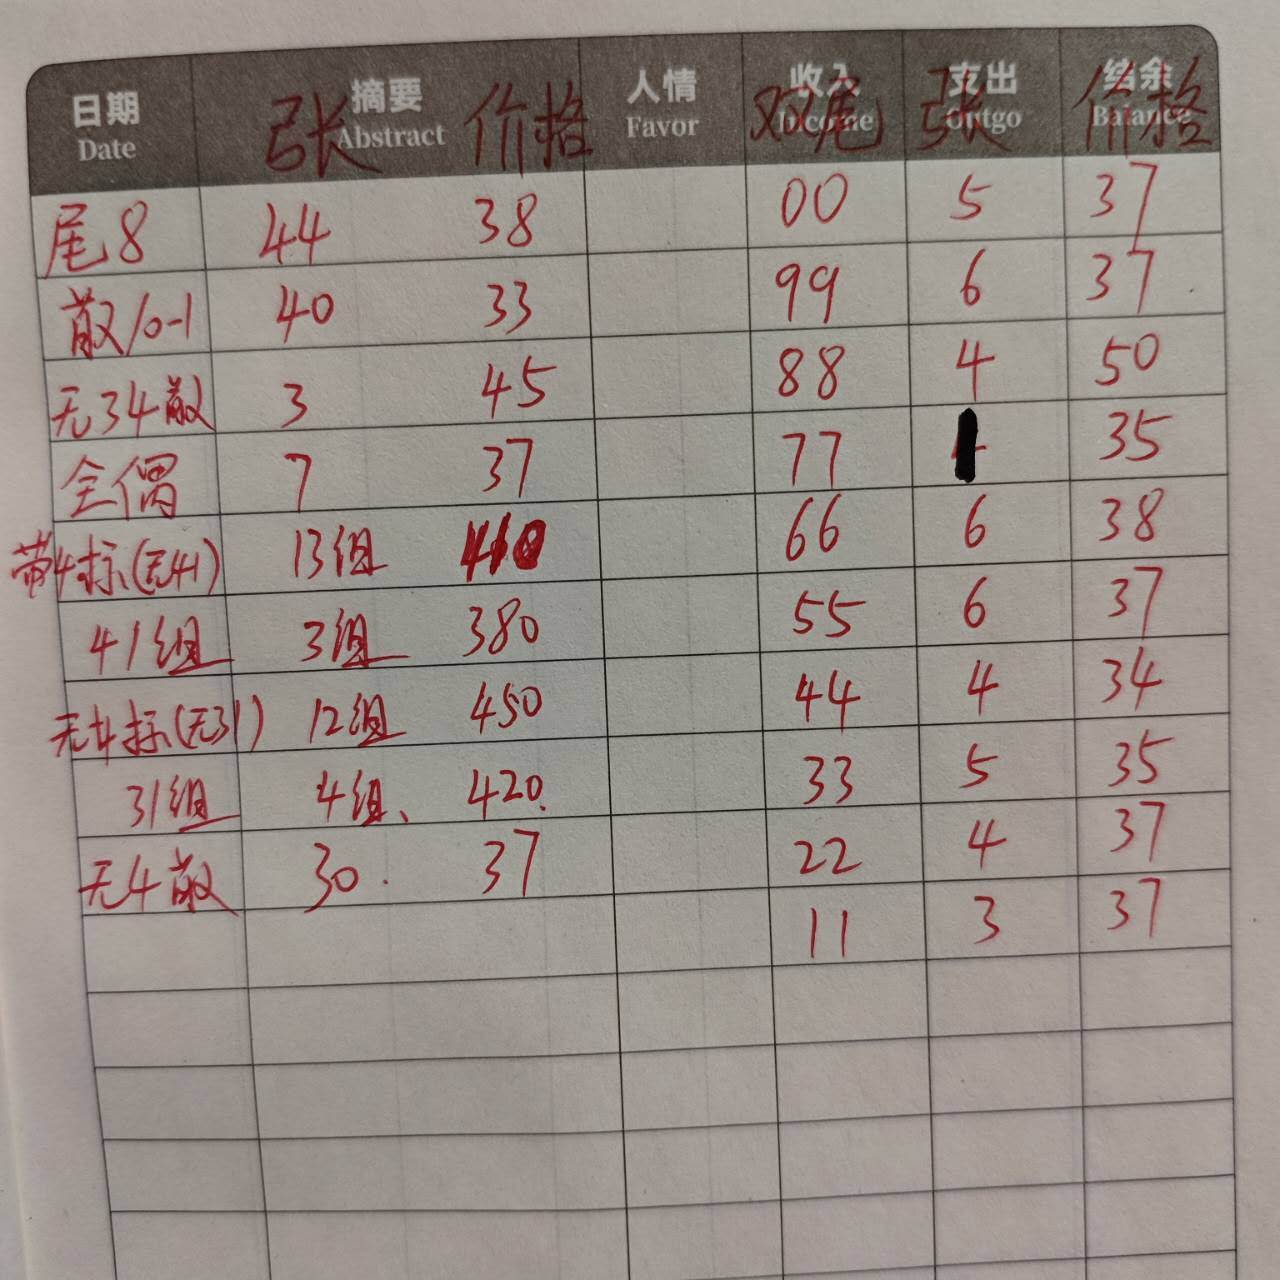 日期 摘要 人情 收入 支出 结余
Date Abstract Favor Income Outgo Balance
张 价格 双尾 张 价格
尾8 44 38 00 5 37
散/0-1 40 33 99 6 37
无34散 3 45 88 4 50
全偶 7 37 77 35
带4标(无41) 13组 410 66 6 38
41组 3组 380 55 6 37
无4标(无31) 12组 450 44 4 34
31组 4组、 420. 33 5 35
无4散 30. 37 22 4 37
11 3 37